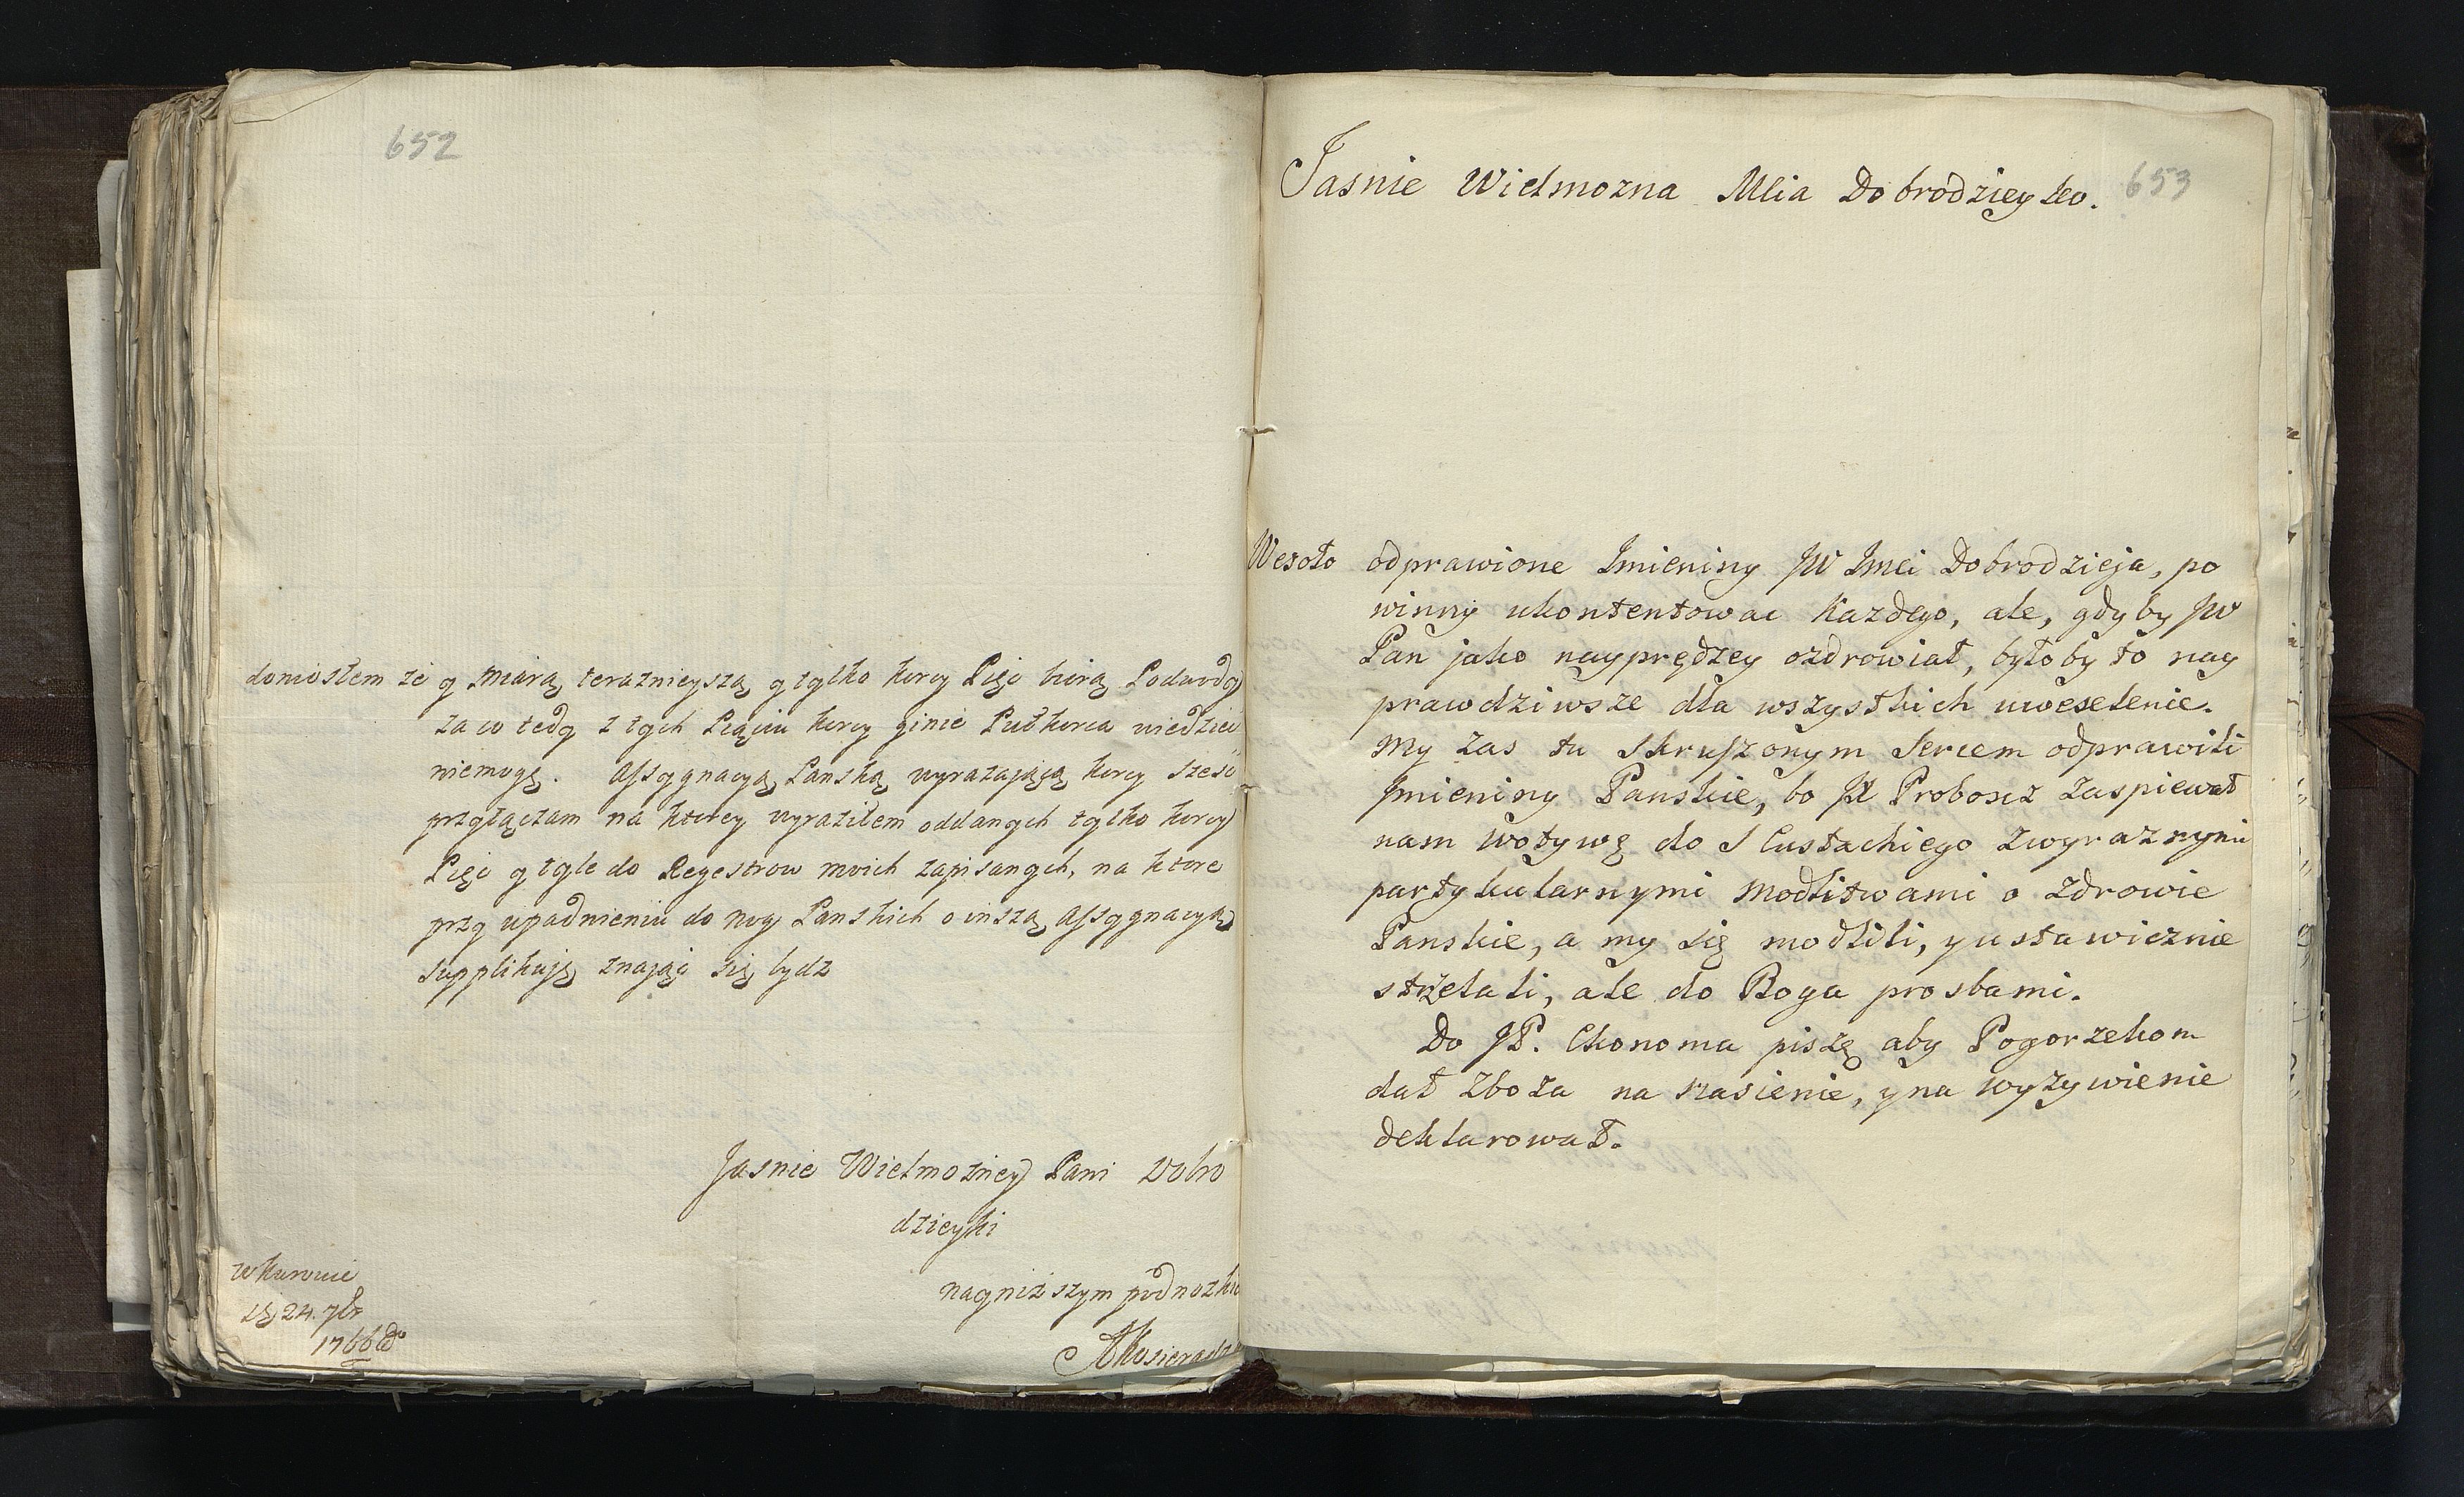 652
doniosłem że y Miarą teraznieyszą y tylko korcy Pięć biorą Podwody
za co tedy z tych Pięciu korcy ginie Pułkorca wiedzieć
niemogę. Assygnacyą Pańską wyrazającą korcy sześć
przyłączam na ktorey wyraziłem oddanych tylko korcy
Pięć y tyle do Regestrow moich zapisanych, na ktore
przy upadnieniu do nog Panskich o inszą Assygnacyą
supplikuję znając się bydz
Jasnie Wielmożney Pani Dobro
dzieyki
nayniższym podnozkie
AKosieradz
w Kurowie
24. 7br
1766
653
Jasnie Wielmozna Mcia Dobrodzieyko.
Wesoło odprawione Imieniny JW Imci Dobrodzieja, po
winny ukontentowac Kazdego, ale, gdyby JW
Pan jako nayprędzey ozdrowiał, byłoby to nay
prawdziwsze dla wszystkich uweselenie.
My zas tu Skruszonym Sercem odprawili
Imieniny Panskie, bo JX Proboszcz Zaspiewał
nam Wotywę do S Eustachiego Zwyraznymi
partykularnymi Modlitwami o Zdrowie
Panskie, a my się modlili, y ustawicznie
strzelali, ale do Boga prosbami.
Do JP. Ekonoma piszę aby Pogorzekom
dał Zboża na nasienie, y na wyzywienie
deklarował.